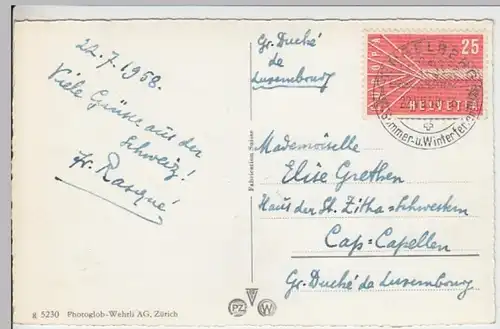 22.7.1958.
Viele Grüsse aus der
Schweiz!
fr. Rasqué
Gr. Duché
de
Luxembourg
Mademoiselle
Elise Grethen
Haus der St. Zitha-Schwestern
Cap=Capellen
Gr. Duché de Luxembourg
25
HELVETIA
ENGELBERG
Sommer-u.Winterferien
Fabrication Suisse
g 5230 Photoglob-Wehrli AG, Zürich
PZ W